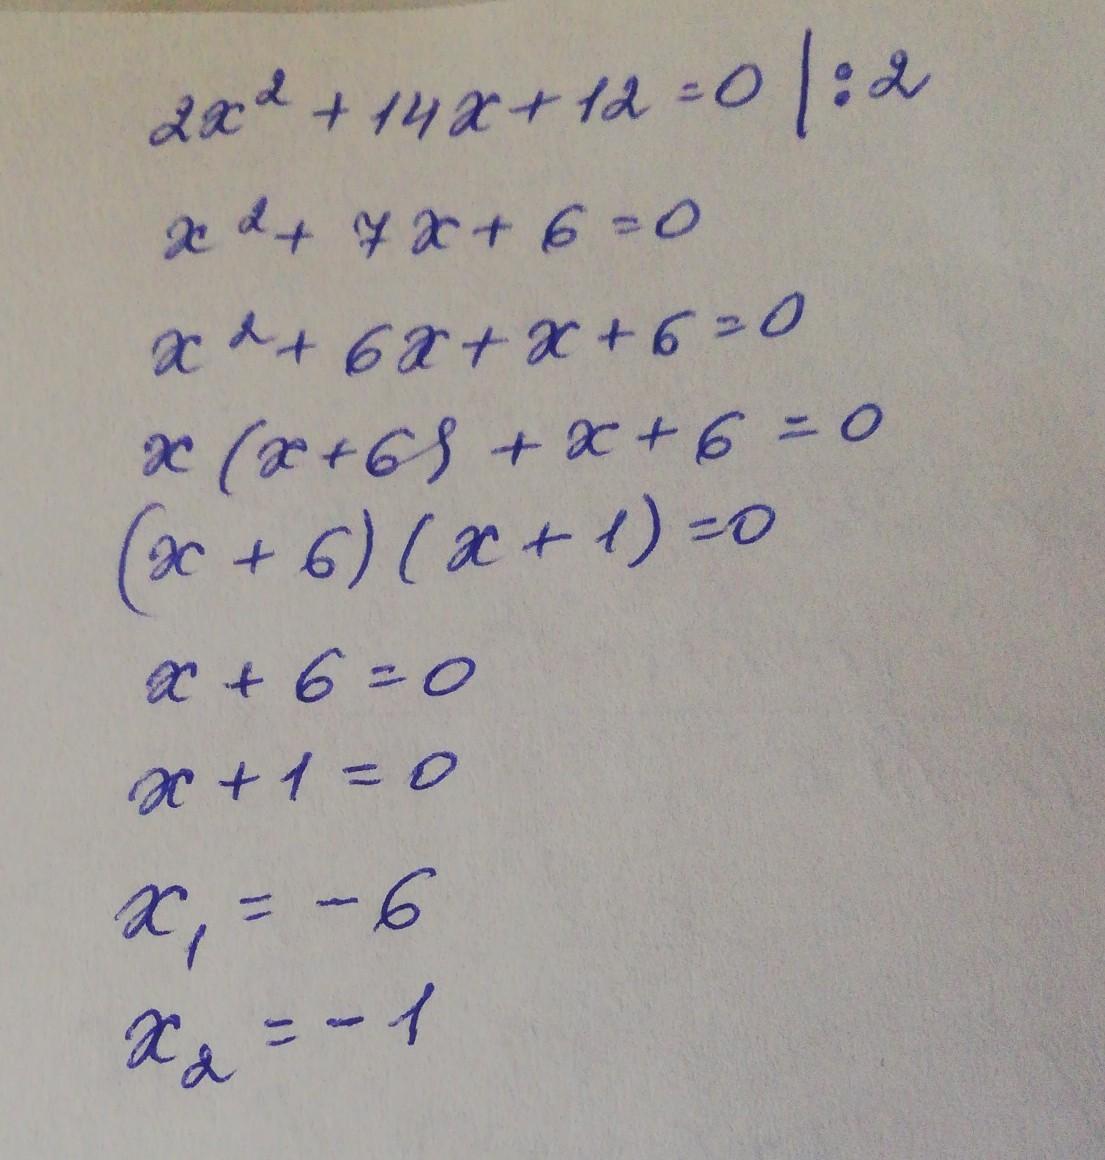 2x² + 14x + 12 = 0 | : 2
x² + 7x + 6 = 0
x² + 6x + x + 6 = 0
x (x + 6) + x + 6 = 0
(x + 6) (x + 1) = 0
x + 6 = 0
x + 1 = 0
x₁ = - 6
x₂ = - 1